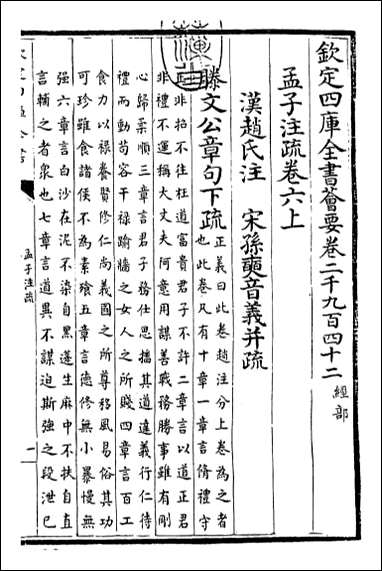 欽定四庫全書薈要卷二千九百四十二 經部
孟子注疏卷六上
漢趙氏注 宋孫奭音義并疏
滕文公章句下疏 正義曰此卷趙注分上卷為之者
也此卷凡有十章一章言脩禮守
正非招不往枉道富貴君子不許二章言以道正君
非禮不運稱大丈夫阿意用謀善戰務勝事雖有剛
心歸柔順三章言君子務仕思播其道達義行仁待
禮而動苟容干祿踰牆之女人之所賤四章言百工
食力以祿養賢修仁尚義國之所尊移風易俗其功
可珍雖食諸侯不為素飱五章言德修無小暴慢無
强六章言白沙在泥不染自黑蓬生麻中不扶自直
言輔之者衆也七章言道異不謀迫斯強之段泄已
孟子注疏
一